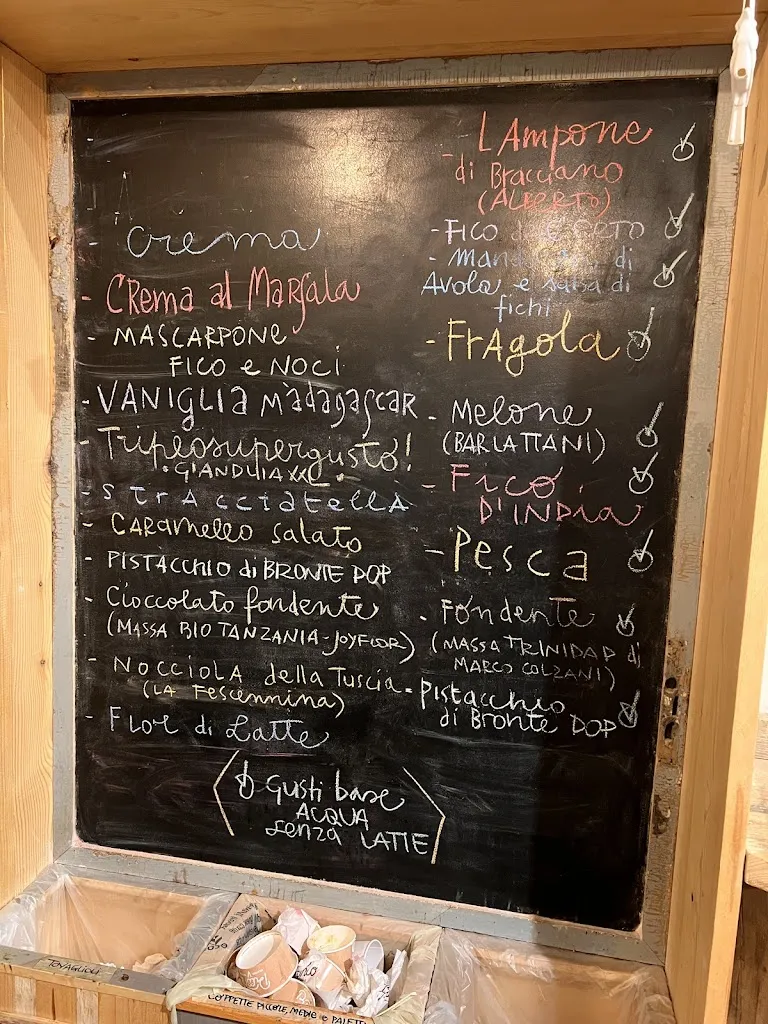 - crema
- CRema al Marsala
- MASCARPONE
FICO e NOCI
- VANIGLIA Madagascar
- Tripeosupergusto!
• GIANDUIA XXL •
- STRACCIATELLA
- CARAMELLO Salato
- PISTACCHIO di BRONTE DOP
- Cioccolato fondente
(MASSA BIO TANZANIA - JOYFLOR)
- NOCCIOLA della Tuscia
(LA Fescennina)
- FIOR di Latte
- LAmpone
di Bracciano
(ALBERTO)
- FICO
- di
Avola e salsa di
fichi
- FRAgola
- Melone
(BARLATTANI)
- FICO
D'INDIA
- Pesca
- Fondente
(MASSA TRINIDAD di
MARCO COLZANI)
- Pistacchio
di Bronte DOP
Gusti base
ACQUA
senza LATTE
TOVAGLIOLI
COPPETTE PICCOLE, MEDIE e PALETTE